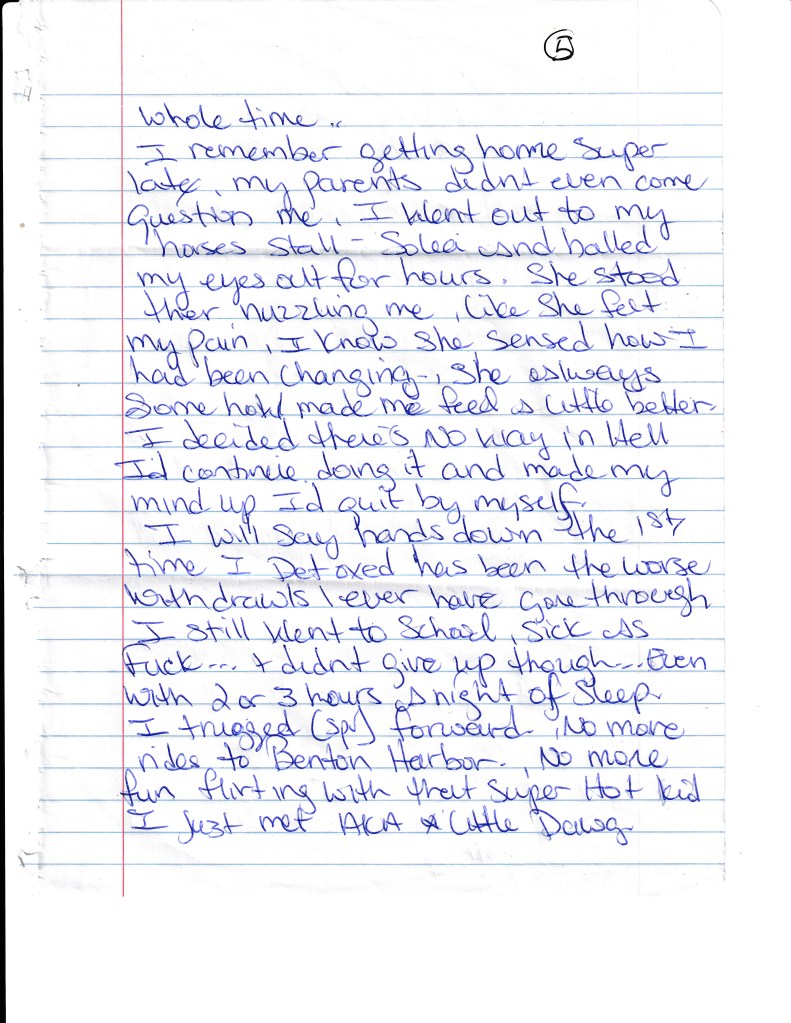 5
Whole time..
I remember getting home super
late, my parents didnt even come
Question me, I Went out to my
horses stall - Solea and balled
my eyes out for hours. She stood
ther nuzzling me, like She felt
my pain, I know She sensed how I
had been Changing-, She aslways
Some how made me feed a little better.
I decided there's No way in Hell
I'd continue doing it and made my
mind up I'd quit by myself.
I will say hands down the 1st
time I Detoxed has been the worse
Withdrawls I ever have Gone through
I still Went to School, Sick As
Fuck... + didnt give up though... Even
with 2 or 3 hours a night of Sleep.
I trugged (sp√) forward-, No more
rides to Benton Harbor-, No more
fun flirting with that Super Hot kid
I just met AKA *Little Dawg-